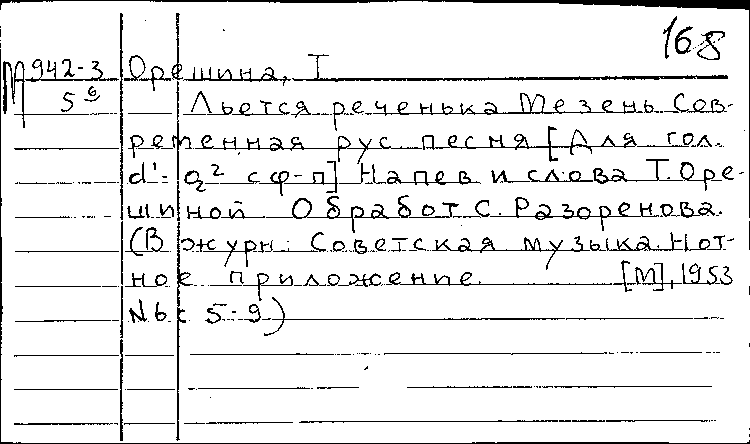 168
М942-3 Орешина, Т
5 9 Льется реченька Мезень Сов-
ременная рус песня [Для гол.
d'- g² с ф-п] Напев и слова Т. Оре-
шиной. Обработ С. Разоренова.
(В журн: Советская музыка. Нот-
ное приложение. [М], 1953
№6 с 5-9)